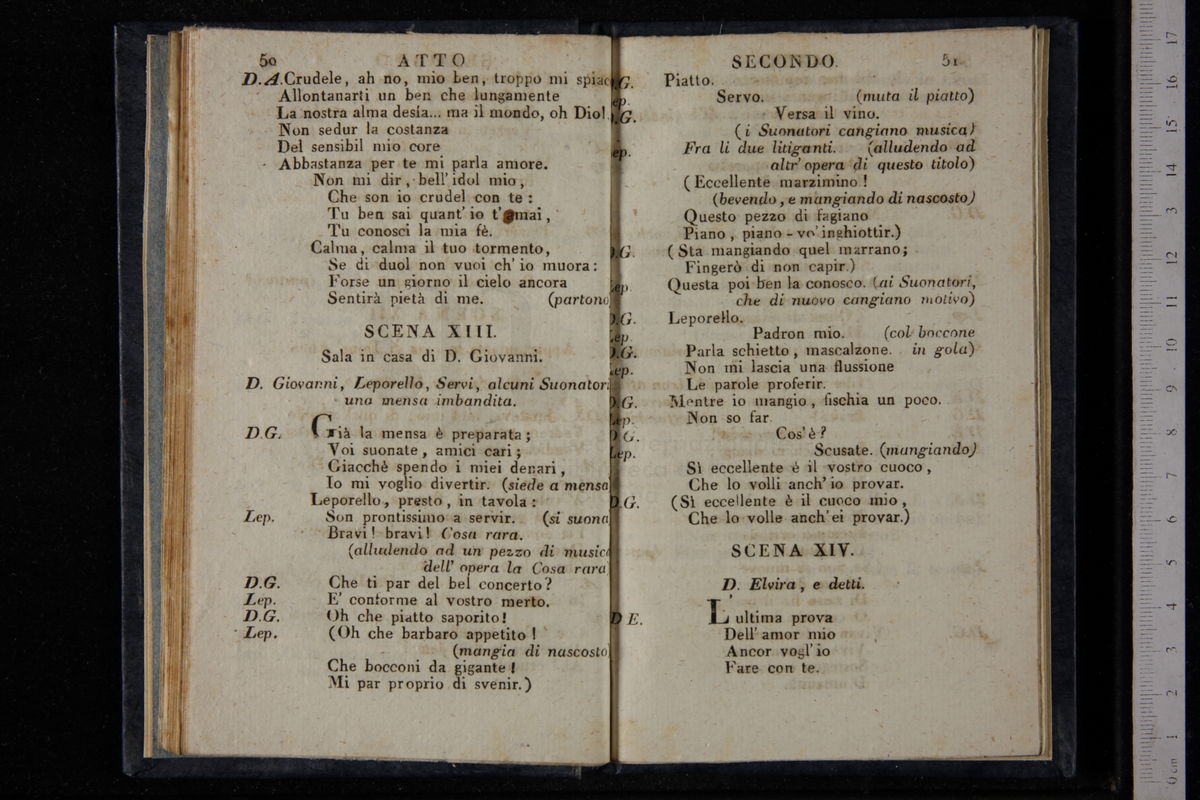 50 ATTO
D.A. Crudele, ah no, mio ben, troppo mi spiac
Allontanarti un ben che lungamente
La nostra alma desía... ma il mondo, oh Dio!
Non sedur la costanza
Del sensibil mio core
Abbastanza per te mi parla amore.
Non mi dir, bell' idol mio,
Che son io crudel con te:
Tu ben sai quant' io t' amai,
Tu conosci la mia fè.
Calma, calma il tuo tormento,
Se di duol non vuoi ch' io muora:
Forse un giorno il cielo ancora
Sentirà pietà di me. (partono
SCENA XIII.
Sala in casa di D. Giovanni.
D. Giovanni, Leporello, Servi, alcuni Suonatori
una mensa imbandita.
D.G. Già la mensa è preparata;
Voi suonate, amici cari;
Giacchè spendo i miei denari,
Io mi voglio divertir. (siede a mensa
Leporello, presto, in tavola:
Lep. Son prontissimo a servir. (si suona
Bravi! bravi! Cosa rara.
(alludendo ad un pezzo di music
dell' opera la Cosa rara
D.G. Che ti par del bel concerto?
Lep. E' conforme al vostro merto.
D.G. Oh che piatto saporito!
Lep. (Oh che barbaro appetito!
(mangia di nascosto
Che bocconi da gigante!
Mi par proprio di svenir.)
SECONDO. 51
.G. Piatto.
ep. Servo. (muta il piatto)
.G. Versa il vino.
(i Suonatori cangiano musica)
ep. Fra li due litiganti. (alludendo ad
altr' opera di questo titolo)
(Eccellente marzimino!
(bevendo, e mangiando di nascosto)
Questo pezzo di fagiano
Piano, piano - vo' inghiottir.)
D.G. (Sta mangiando quel marrano;
Fingerò di non capir.)
Lep. Questa poi ben la conosco. (ai Suonatori,
che di nuovo cangiano motivo)
D.G. Leporello.
Lep. Padron mio. (col boccone
D.G. Parla schietto, mascalzone. in gola)
Lep. Non mi lascia una flussione
Le parole proferir.
D.G. Mentre io mangio, fischia un poco.
Lep. Non so far.
D G. Cos' è?
Lep. Scusate. (mangiando)
Sì eccellente é il vostro cuoco,
Che lo volli anch' io provar.
D.G. (Sì eccellente è il cuoco mio,
Che lo volle anch' ei provar.)
SCENA XIV.
D. Elvira, e detti.
D E. L' ultima prova
Dell' amor mio
Ancor vogl' io
Fare con te.
17
16
15
14
13
12
11
10
9
8
7
6
5
4
3
2
1
0 cm